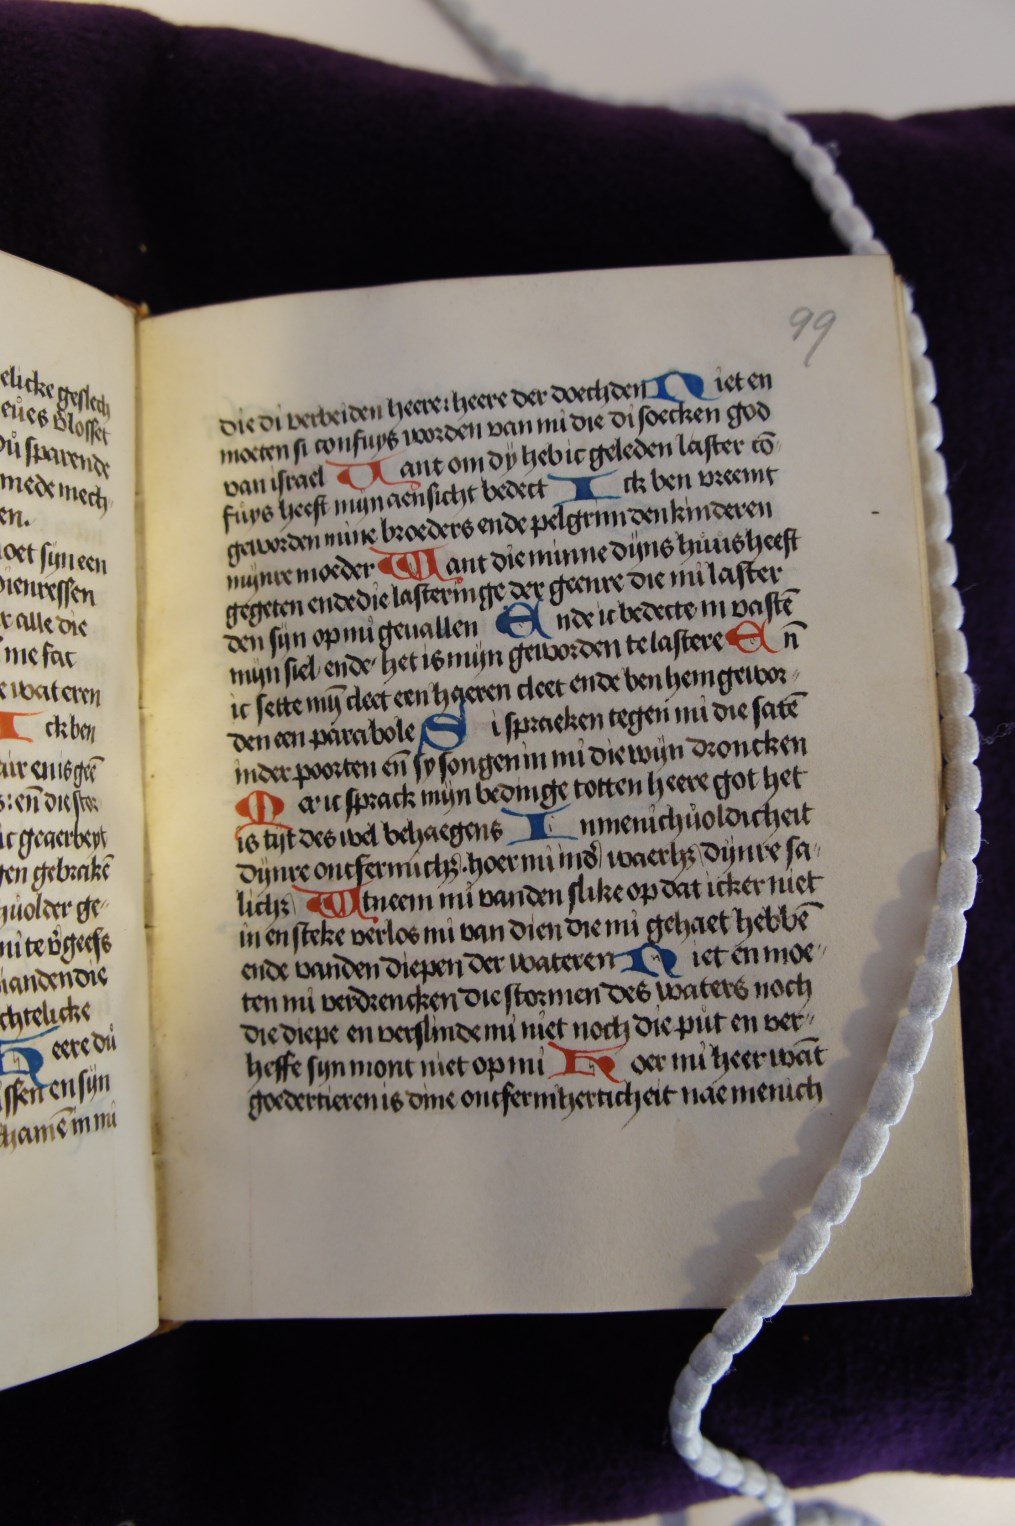 elicke geslech
eues Blosset
Dů sparende
mede mech
en.
oet sijn een
Dienressen
r alle die
me fac
e wateren
I ck ben
aůr en is geē
s: eñ die stor
ic geaerbeyt
gen gebrakē
hůolder ge-
mi te v̊geefs
vanden die
chtelicke
H eere dů
ssen en sijn
schamē in mi
99
die di verbeiden heere: heere der doechden N iet en
moeten si confuys worden van mi die di soecken god
van israel W ant om dy heb ic geleden laster cō-
fuys heeft mijn aensicht bedect I ck ben vreemt
geworden mine broeders ende pelgrim den kinderen
mijnre moeder W ant die minne dijns huus heeft
gegeten ende die lasteringe der geenre die mi laster
den sijn op mi geuallen E nde ic bedecte in vastē
mijn siel ende het is mijn geworden te lastere E ñ
ic sette mȳ cleet een haeren cleet ende ben hem gewor-
den een parabole S i spraeken tegen mi die satē
inder poorten eñ sy songen in mi die wijn droncken
M er ic sprack mijn bedinge totten heere got het
is tijt des wel behaegens I n menichůoldicheit
dijnre ontfermichꝫ. hoer mi in d̊ waerhꝫ dijnre sa-
lichꝫ W tneem mi vanden slike op dat icker niet
in en steke verlos mi van dien die mi gehaet hebbē
ende vanden diepen der wateren N iet en moe-
ten mi verdrencken die stormen des waters noch
die diepe en verslinde mi niet noch die put en ver-
heffe sijn mont niet op mi H oer mi heer wāt
goedertieren is dine ontfermherticheit nae menich